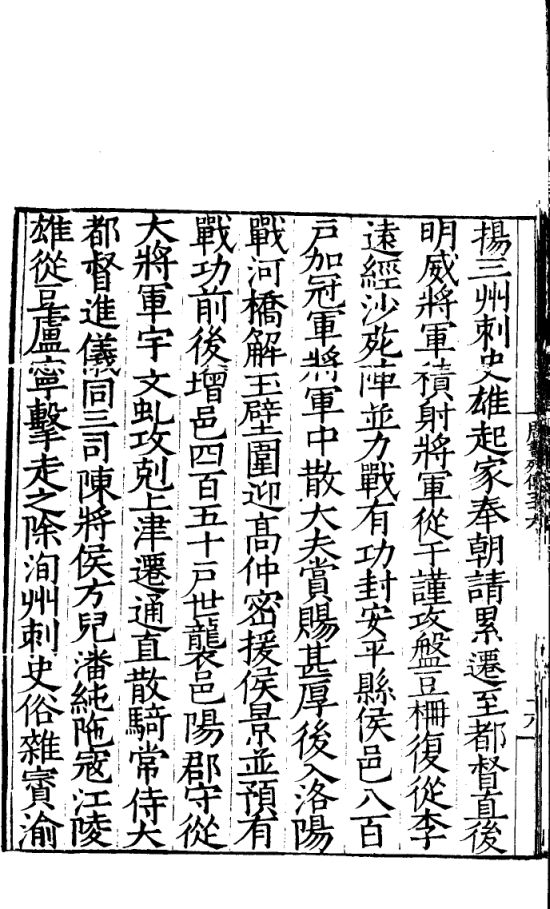 揚三州刺史雄起家奉朝請累遷至都督直後
明威將軍積射將軍從于謹攻盤豆柵復從李
遠經沙苑陣並力戰有功封安平縣侯邑八百
戶加冠軍將軍中散大夫賞賜甚厚後入洛陽
戰河橋解玉壁圍迎高仲密援侯景並預有
戰功前後增邑四百五十戶世襲邑陽郡守從
大將軍宇文虬攻剋上津遷通直散騎常侍大
都督進儀同三司陳將侯方兒潘純陁寇江陵
雄從豆盧寧擊走之除洵州刺史俗雜賓渝